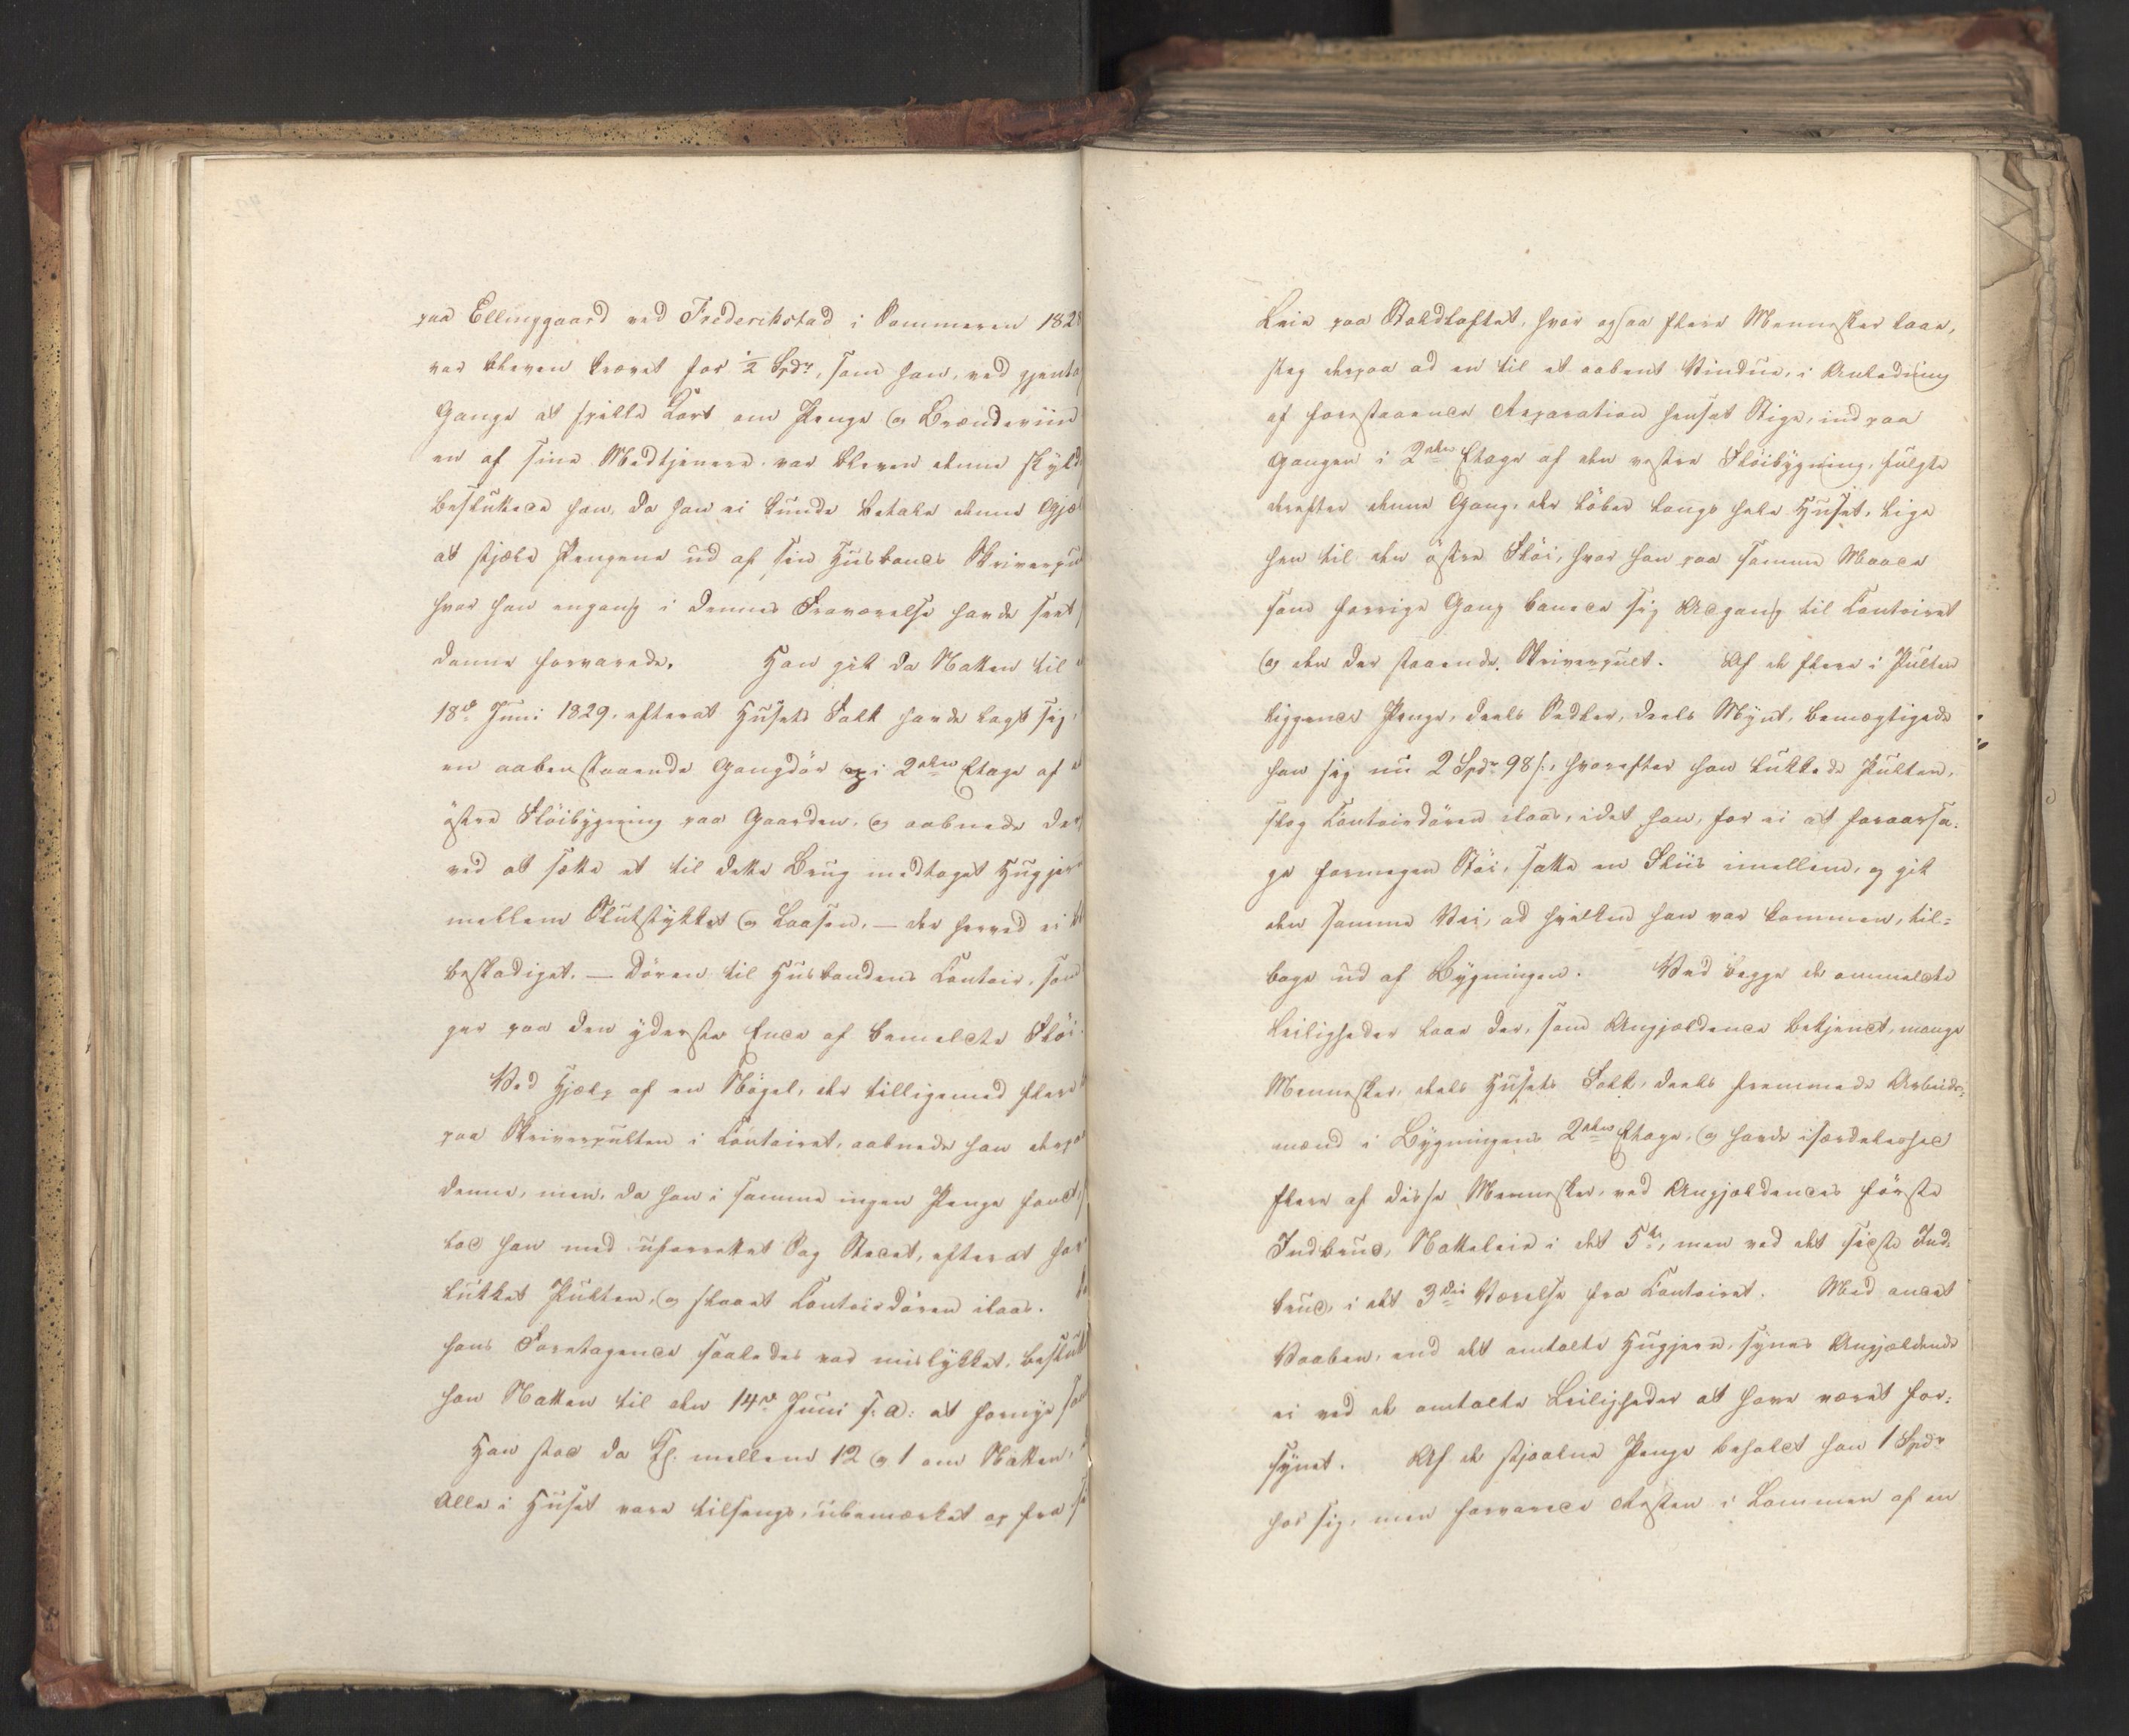 paa Ellinggaard ved Frederikstad i Sommeren 1828
var bleven krævet for ½ Spdr, som han, ved gjenta
Gange at spille Kort om Penge og Brændeviin
en af sine Medtjenere var bleven denne skyld
besluttede han, da han ei kunde betale denne Gjæ
at stjæle Pengene ud af sin Husbonds Skriverpu
hvor han engang i dennes Fraværelse havde seet
denne forvarede. Han gik da Natten til
18de Juni 1829, efterat Husets Folk havde lagt sig,
en aabenstaaende Gangdör i 2den Etage af
östre Flöibygning paa Gaarden, og aabnede der
ved at sætte et til dette Brug medtaget Hugjern
mellem Slutstykket og Laasen, — der herved ei
beskadiget, — Dören til Husbondens Contoir, som
ger paa den yderste Ende af bemeldte Flöi.
Ved Hjælp af en Nögel, der tilligemed flere
paa Skriverpulten i Contoiret, aabnede han derpaa
denne, men, da han i samme ingen Penge fandt,
lod han med uforrettet Sag Stedet, efterat ha
lukket Pulten, og slaaet Contoirdören ilaas.
hans Foretagende saaledes var mislykket, beslutt
han Natten til den 14de Juni s: a: at fornye
Han stod da Kl. mellem 12 og 1 om Natten,
Alle i Huset vare tilsengs, ubemærket op fra
Leie paa Staldloftet, hvor ogsaa flere Mennesker laae,
steg derpaa ad en til et aabent Vindue, i Anledning
af forestaaende Reparation hensat Stige, ind paa
Gangen i 2den Etage af den vestre Flöibygning, fulgte
derefter denne Gang, der löber langs hele Huset, lige
hen til den östre Flöi, hvor han paa samme Maade
som forrige Gang banede sig Adgang til Contoiret
og den der staaende Skriverpult. Af de flere i Pulten
liggende Penge, deels Sedler, deels Mynt, bemægtigede
han sig nu 2 Spdr 98 s, hvorefter han lukkede Pulten,
slog Contoirdören ilaas, idet han, for ei at foraarsa-
ge formegen Stöi, satte en Fliis imellem, og gik
den samme Vei, ad hvilken han var kommen, til-
bage ud af Bygningen. Ved begge de ommeldte
Leiligheder laae der, som Angjældende bekjendt, mange
Mennesker, deels Husets Folk, deels fremmede Arbeids-
mænd i Bygningens 2den Etage, og havde isærdeleshed
flere af disse Mennesker, ved Angjældendes förste
Indbrud, Natteleie i det 5te, men ved det sidste Ind-
brud, i det 3die Værelse fra Contoiret. Med andet
Vaaben, end det omtalte Hugjern, synes Angjældende
ei ved de omtalte Leiligheder at have været for-
synet. Af de stjaalne Penge beholdt han 1 Spdr
hos sig, men forvarede Resten i Lommen af en